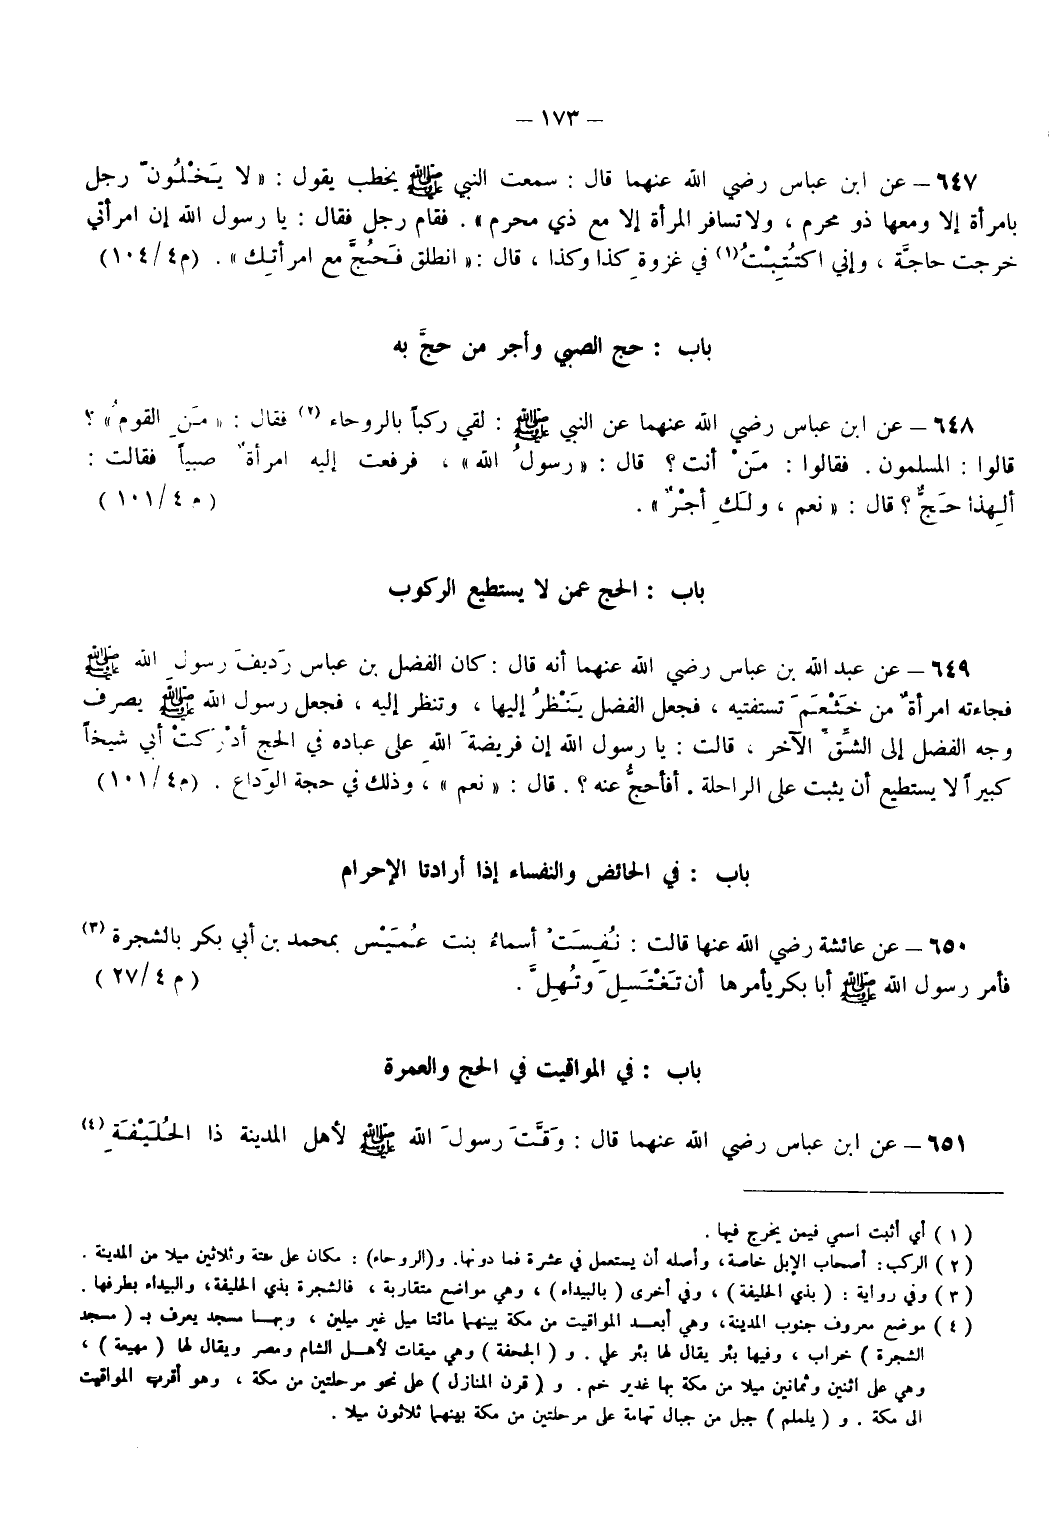 – ١٧٣ –
٦٤٧ – عن ابن عباس رضي الله عنهما قال : سمعت النبي ﷺ يخطب يقول : « لا يَخْلُونّ رجل
بامرأة إلا ومعها ذو محرم ، ولا تسافر المرأة إلا مع ذي محرم » . فقام رجل فقال : يا رسول الله إن امرأتي
خرجت حاجَّة ، وإني اكتُتِبْتُ(١) في غزوةِ كذا وكذا ، قال : « انطلق فَحُجَّ مع امرأتك » . (م٤/١٠٤)
باب : حج الصبي وأجر من حجَّ به
٦٤٨ – عن ابن عباس رضي الله عنهما عن النبي ﷺ : لقي ركباً بالروحاء (٢) فقال : « مَنِ القومُ » ؟
قالوا : المسلمون . فقالوا : مَنْ أنت ؟ قال : « رسولُ الله » ، فرفعت إليه امرأةٌ صبياً فقالت :
ألهذا حَجٌّ ؟ قال : « نعم ، ولكِ أجْرٌ » . (م٤/١٠١)
باب : الحج عمن لا يستطيع الركوب
٦٤٩ – عن عبد الله بن عباس رضي الله عنهما أنه قال : كان الفضل بن عباس رَديفَ رسولِ الله ﷺ
فجاءته امرأةٌ من خَثْعَمَ تستفتيه ، فجعل الفضل يَنْظُرُ إليها ، وتنظر إليه ، فجعل رسول الله ﷺ يصرف
وجه الفضل إلى الشِّقِّ الآخر ، قالت : يا رسول الله إن فريضةَ اللهِ على عباده في الحج أدْرَكتْ أبي شيخاً
كبيراً لا يستطيع أن يثبت على الراحلة . أفأحجُّ عنه ؟ . قال : « نعم » ، وذلك في حجة الوَداع . (م٤/١٠١)
باب : في الحائض والنفساء إذا أرادتا الإحرام
٦٥٠ – عن عائشة رضي الله عنها قالت : نُفِسَتْ أسماءُ بنت عُمَيْس بمحمد بن أبي بكر بالشجرة (٣)
فأمر رسول الله ﷺ أبا بكر يأمرها أن تَغْتَسِلَ وتُهِلَّ . (م٤/٢٧)
باب : في المواقيت في الحج والعمرة
٦٥١ – عن ابن عباس رضي الله عنهما قال : وَقَّتَ رسولَ الله ﷺ لأهل المدينة ذا الحُلَيْفَةِ (٤)
(١) أي أثبت اسمي فيمن يخرج فيها .
(٢) الركب : أصحاب الإبل خاصة ، وأصله أن يستعمل في عشرة فما دونها . و(الروحاء) : مكان على ستة وثلاثين ميلا من المدينة .
(٣) وفي رواية : ( بذي الحليفة ) ، وفي أخرى ( بالبيداء ) ، وهي مواضع متقاربة ، فالشجرة بذي الحليفة ، والبيداء بطرفها .
(٤) موضع معروف جنوب المدينة ، وهي أبعد المواقيت من مكة بينهما مائتا ميل غير ميلين ، وبها مسجد يعرف بـ ( مسجد
الشجرة ) خراب ، وفيها بئر يقال لها بئر علي . و ( الجحفة ) وهي ميقات لأهل الشام ومصر ويقال لها ( مهيعة ) ،
وهي على اثنين وثمانين ميلا من مكة بها غدير خم . و ( قرن المنازل ) على نحو مرحلتين من مكة ، وهو أقرب المواقيت
الى مكة . و ( يلملم ) جبل من جبال تهامة على مرحلتين من مكة بينهما ثلاثون ميلا .